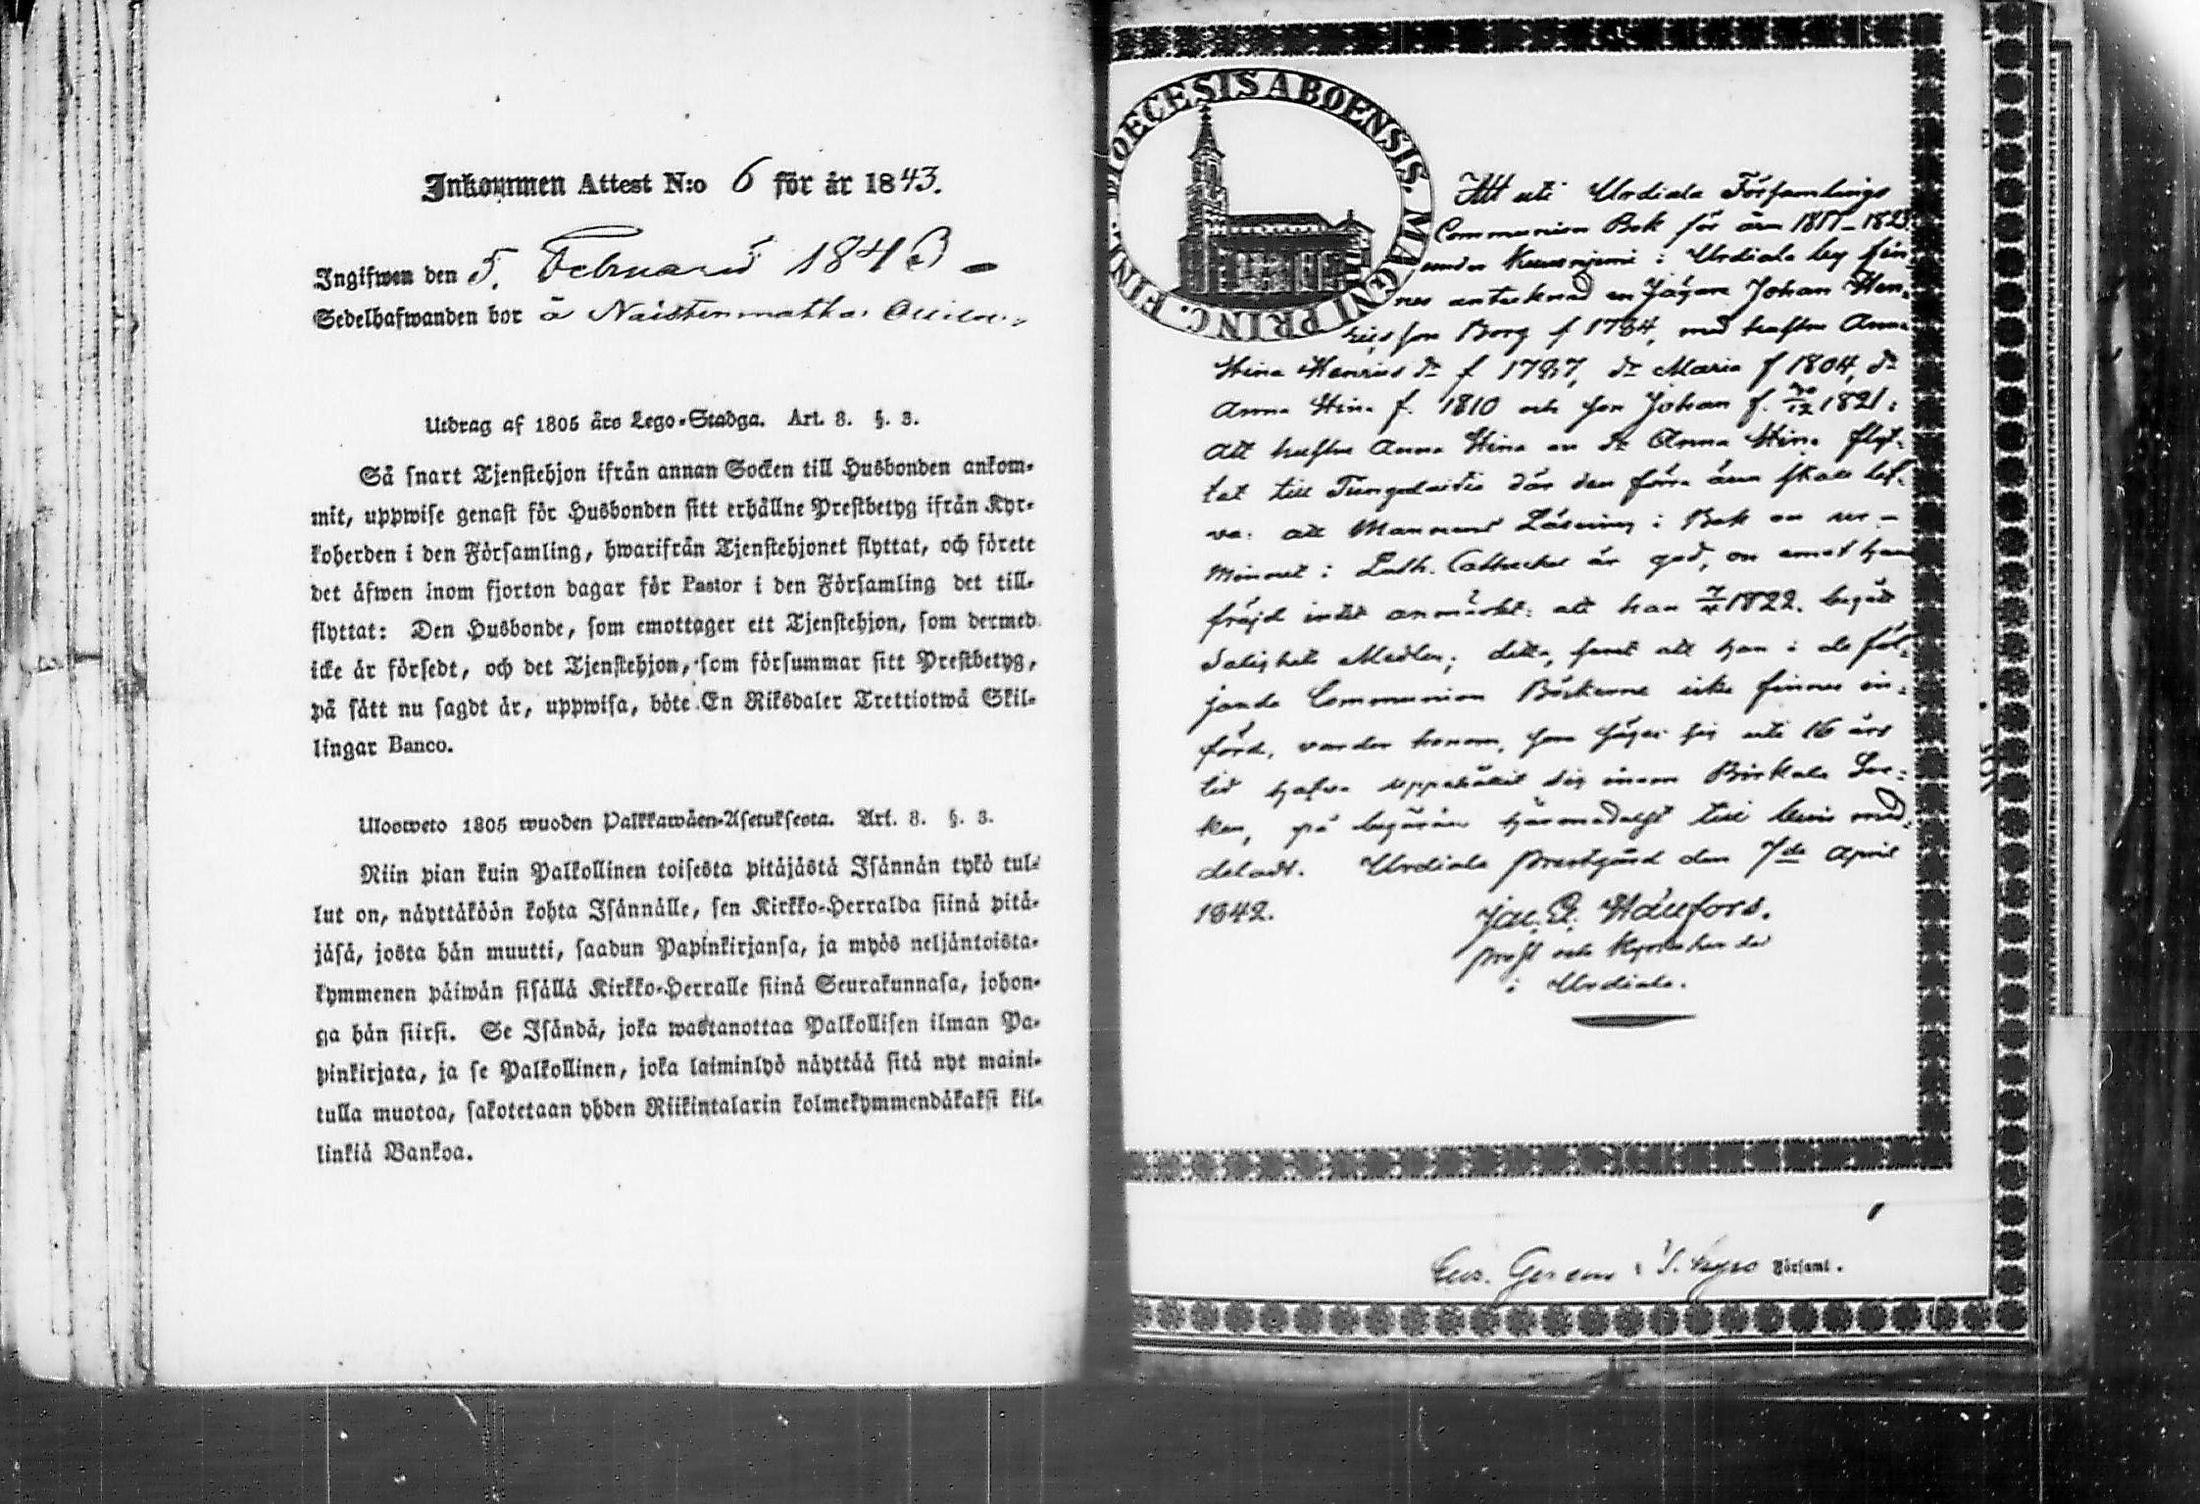 Inkommen Attest N:o 6 för år 1843.
Ingifwen den 5. Februarii 1843
Sedelhafwanden bor å Naistenmatka
Utdrag af 1805 års Lego-Stadga. Art. 8. §. 3.
Så snart Tjenstehjon ifrån annan Socken till Husbonden ankom-
mit, uppwise genast för Husbonden sitt erhållne Prestbetyg ifrån Kyr-
koherden i den Församling, hwarifrån Tjenstehjonet flyttat, och förete
det äfwen inom fjorton dagar för Pastor i den Församling det till-
flyttat: Den Husbonde, som emottager ett Tjenstehjon, som dermed
icke är försedt, och det Tjenstehjon, som försummar sitt Prestbetyg,
på sätt nu sagdt är, uppwisa, böte En Riksdaler Trettiotwå Skil-
lingar Banco.
Ulosweto 1805 wuoden Palkkawäen-Asetuksesta. Art. 8. §. 3.
Niin pian kuin Palkollinen toisesta pitäjästä Isännän tykö tul-
lut on, näyttäköön kohta Isännälle, sen Kirkko-Herralda siinä pitä-
jäsä, josta hän muutti, saadun Papinkirjansa, ja myös neljäntoista-
kymmenen päiwän sisällä Kirkko-Herralle siinä Seurakunnasa, johon-
ga hän siirsi. Se Isändä, joka wastanottaa Palkollisen ilman Pa-
pinkirjata, ja se Palkollinen, joka laiminlyö näyttää sitä nyt maini-
tulla muotoa, sakotetaan yhden Riikintalarin kolmekymmendäkaksi kil-
linkiä Bankoa.
DIOECESIS ABOENSIS. MAGNI PRINC. FINL.
Att uti Urdiala Församlings
Communion Bok för åren 1817–1823
under i Urdiala by fin-
nes antecknad en Jägare Johan Hen-
ricsson Borg f 1784, med hustru Anna
Stina Henrics dr f 1787, dr Maria f 1804, dr
Anna Stina f. 1810 och son Johan f. 30/12 1821:
att hustru Anna Stina en dr Anna Stina flyt-
tat till där den förra ännu skall lef-
va: att Mannens Läsning i Bok en ur
Minnet i Luth. Catheches är god, en emot hans
fräjd intet anmärkt: att han 1822. begått
Salighets Medlen; detta, samt att han i de föl-
jande Communion Böckerne icke finnes in-
förd, varder honom, som säges sig uti 16 års
tid hafva uppehållit sig inom Birkala Soc-
ken, på begäran härmedelst till bevis med-
deladt. Urdiala prestgård den 7de April
1842. Jac. Stäufors.
prost och Kyrkoherde
i Urdiala.
i Församl.